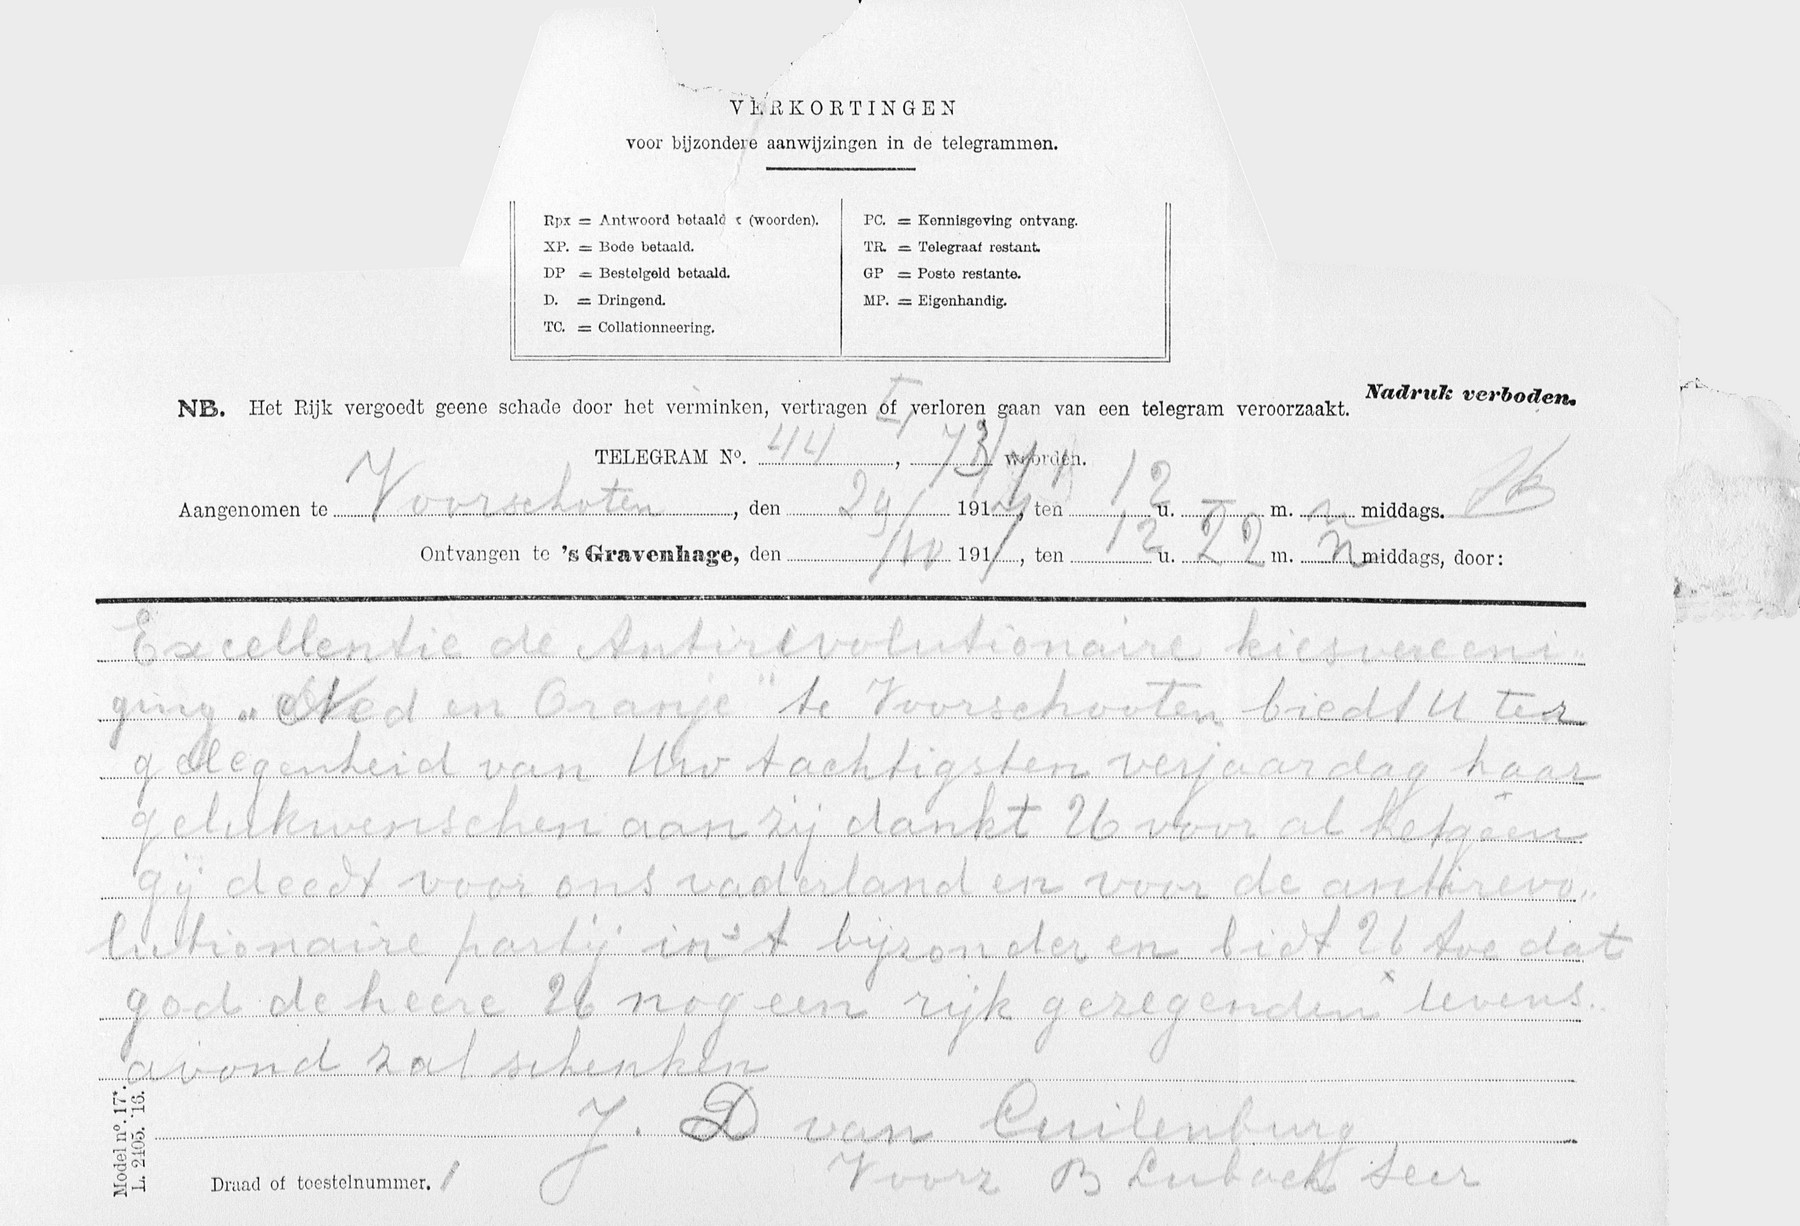 VERKORTINGEN
voor bijzondere aanwijzingen in de telegrammen.
Rpx = Antwoord betaald x (woorden).
XP. = Bode betaald.
DP = Bestelgeld betaald.
D. = Dringend.
TC. = Collationneering.
PC. = Kennisgeving ontvang.
TR. = Telegraaf restant.
GP = Poste restante.
MP. = Eigenhandig.
Nadruk verboden.
NB. Het Rijk vergoedt geene schade door het verminken, vertragen of verloren gaan van een telegram veroorzaakt.
TELEGRAM No. 44, 73/71 woorden.
Aangenomen te Voorschoten, den 29/ 191, ten 12 u. – m. n middags.
Ontvangen te 's Gravenhage, den /10 191/, ten 12 u. 22 m. n middags, door:
Excellentie de Antirevolutionaire kiesvereeni-
ging „Ned en Oranje" te Voorschooten biedt U ter
gelegenheid van Uw tachtigsten verjaardag haar
gelukwenschen aan zij dankt U voor al hetgeen
gij deedt voor ons vaderland en voor de antirevo-
lutionaire partij in 't bijzonder en bidt U toe dat
god de heere U nog een rijk gezegenden levens-
avond zal schenken
J. D van Cuilenburg
Voorz B Luback Secr
Draad of toestelnummer. 1
Model no. 17*.
L. 2405. '16.